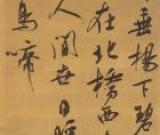 垂楊下碧
在北橋西
人間世日
鳥啼